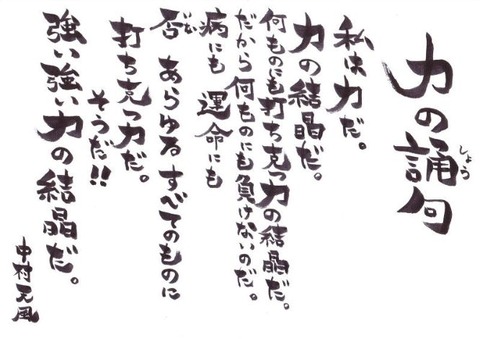 力の誦句
しょう
私は力だ。
力の結晶だ。
何ものにも打ち克つ力の結晶だ。
だから何ものにも負けないのだ。
病にも 運命にも
否 あらゆるすべてのものに
いな
打ち克つ力だ。
そうだ!!
強い強い力の結晶だ。
中村天風